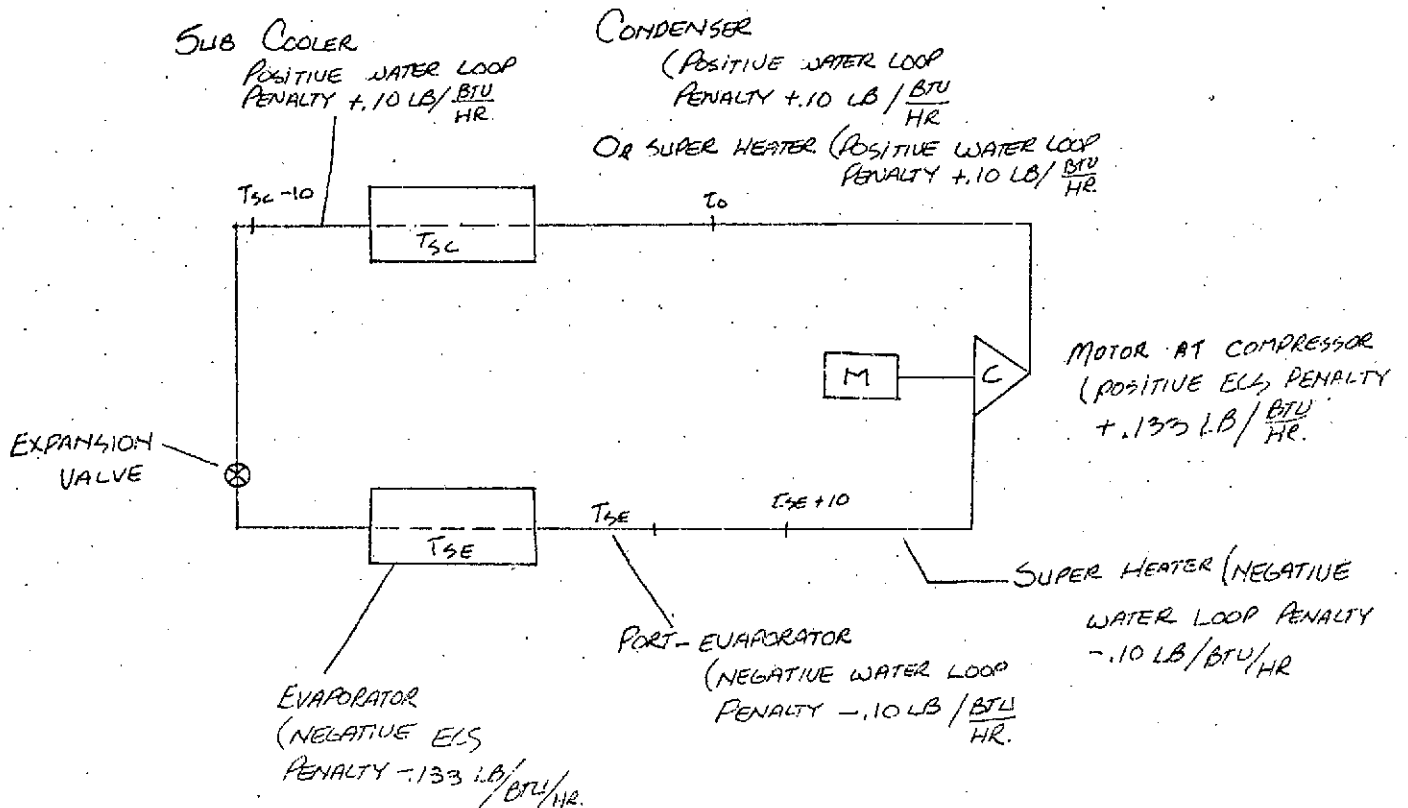 SUB COOLER
POSITIVE WATER LOOP
PENALTY +.10 LB/BTU
HR.
CONDENSER
(POSITIVE WATER LOOP
PENALTY +.10 LB/BTU
HR
OR SUPER HEATER (POSITIVE WATER LOOP
PENALTY +.10 LB/BTU
HR.
TSC -10
TSC
TO
M
C
MOTOR AT COMPRESSOR
(POSITIVE ECS PENALTY
+.133 LB/BTU
HR.
EXPANSION
VALVE
TSE
TSE
TSE +10
SUPER HEATER (NEGATIVE
WATER LOOP PENALTY
-.10 LB/BTU/HR
PORT-EVAPORATOR
(NEGATIVE WATER LOOP
PENALTY -.10 LB/BTU
HR.
EVAPORATOR
(NEGATIVE ECS
PENALTY -.133 LB/BTU/HR.